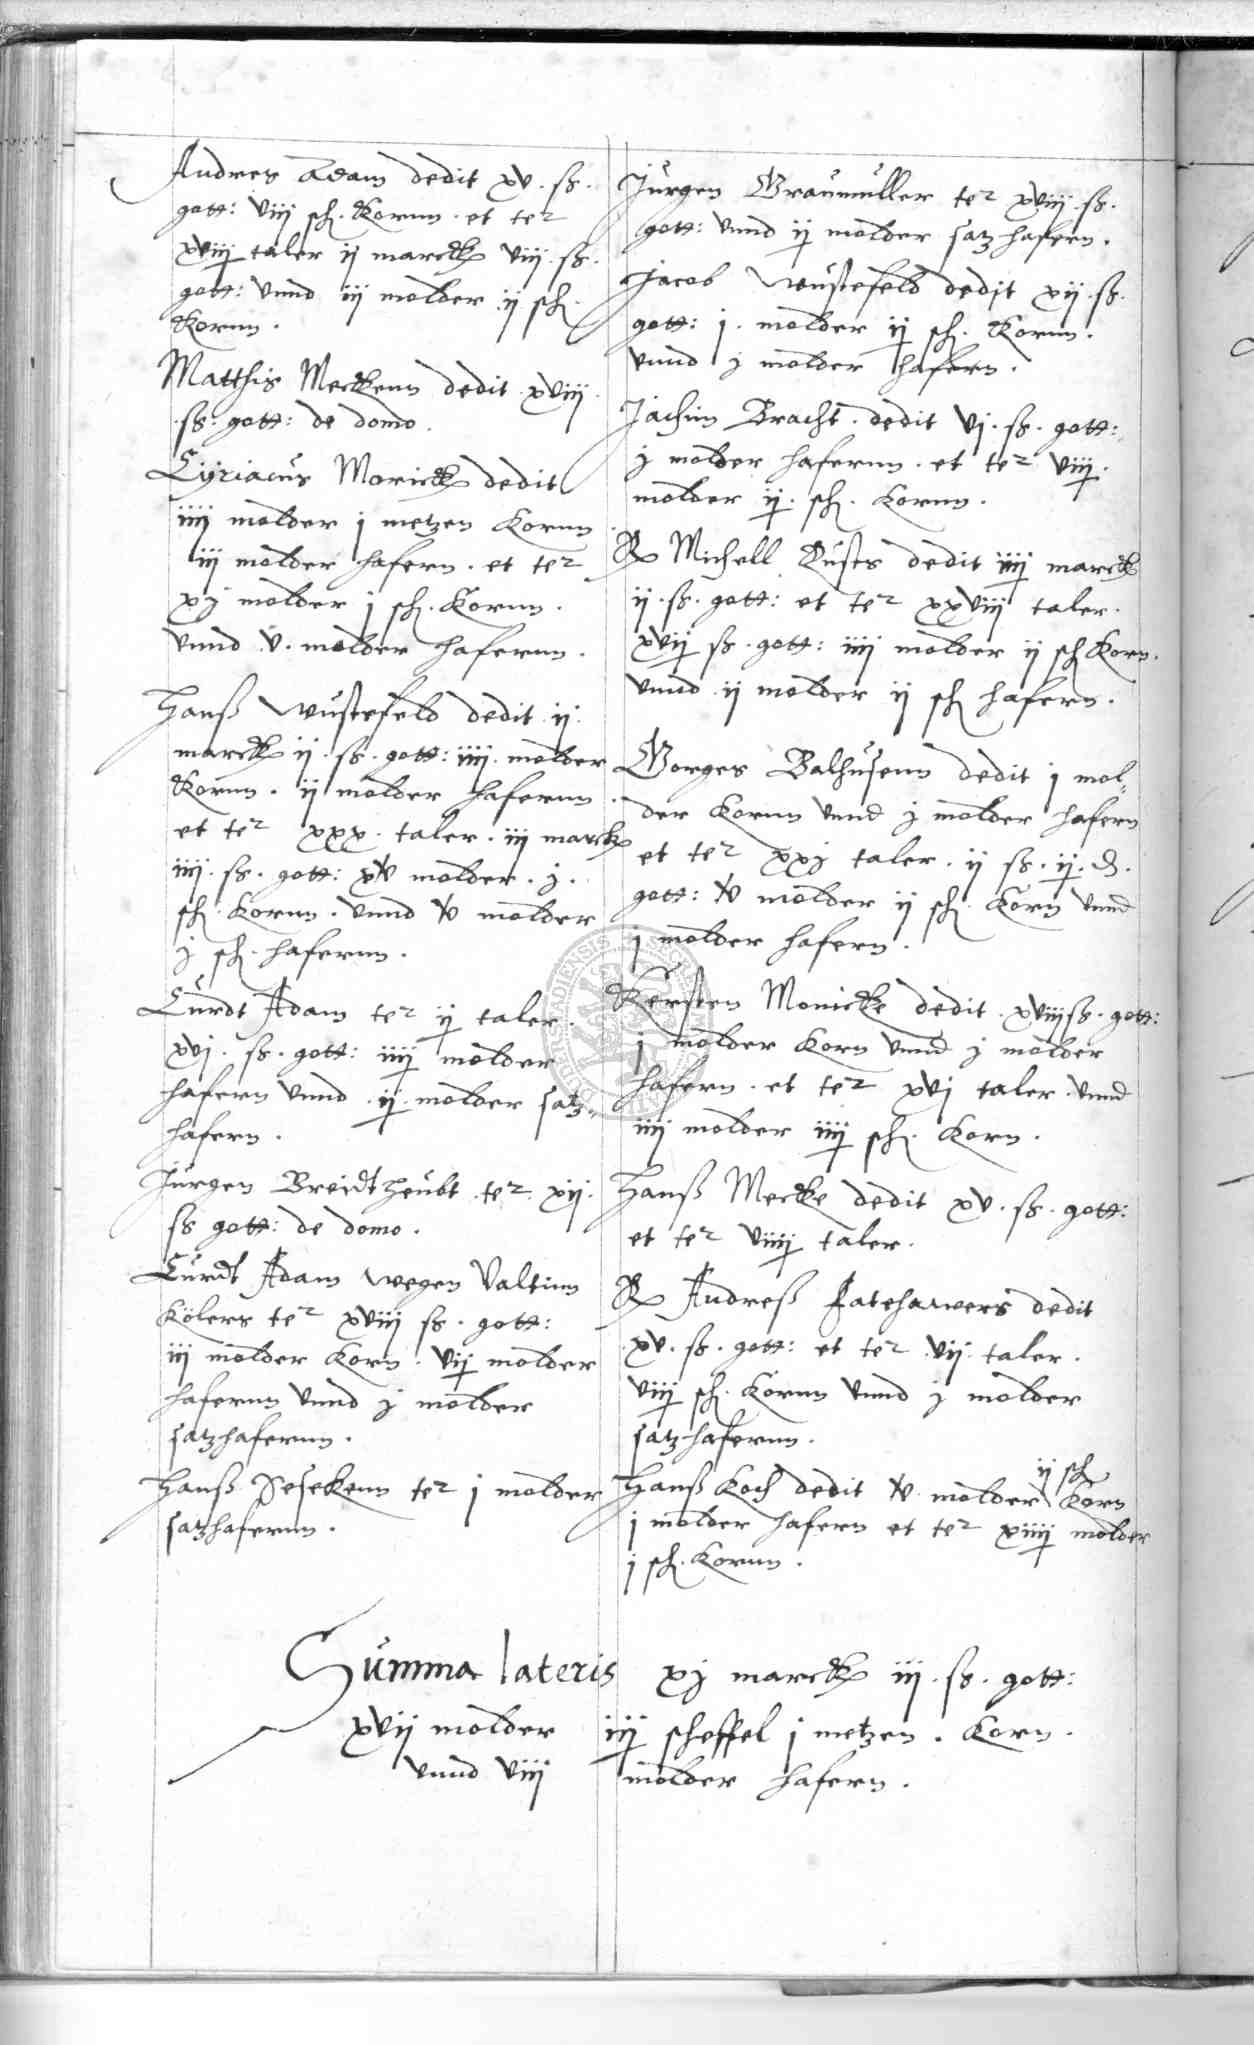 Andres Adam dedit xv. ß.
gott: viij sch. Kornn. et ter
xviij taler ij marck viij. ß.
gott: vnnd iij molder ij sch.
Kornn.
Matthis Meckenn dedit xviij
ß. gott: de domo.
Cyriacus Morick dedit
iiij molder j metzen Kornn
iij molder hafern. et ter
xj molder j sch. Kornn.
vnnd v. molder hafernn.
Hanß Wustefeld dedit ij.
marck ij. ß. gott: iiij. molder
Kornn. ij molder hafernn.
et ter xxx. taler. iij marck
iiij. ß. gott: xv molder. j.
sch. Kornn. vnnd v molder
j sch. hafernn.
Curdt Adam ter ij taler.
xvj. ß. gott: iiij molder
hafern vnnd ij. molder satz-
hafern.
Jurgen Breidtheubt ter xij.
ß gott: de domo.
Curdt Adam wegen Valtinn
Kölers ter xviij ß. gott:
iij molder Korn. vij molder
hafernn vnnd j molder
satzhafernn.
Hanß Desekenn ter j molder
satzhafernn.
Jurgen Graumuller ter xviij. ß.
gott: vnnd ij molder satzhafern.
Jacob Wustefeld dedit xij. ß.
gott: j. molder ij sch. Kornn.
vnnd j molder hafern.
Jachim Bracht. dedit vj. ß. gott:
j molder hafernn. et ter viij.
molder ij. sch. Kornn.
R Michell Custs dedit iiij marck
ij. ß. gott: et ter xxviij taler.
xvij ß. gott: iiij molder ij sch Korn.
vnnd ij molder ij sch hafern.
Gorges Balhusenn dedit j mol-
der Kornn vnnd j molder hafern
et ter xxj taler. ij ß. ij. d.
gott: v molder ij sch. Korn vnnd
j molder hafern.
Kersten Monicke dedit. xviij ß. gott:
j molder Korn vnnd j molder
hafern. et ter xvj taler. vnnd
iiij molder iiij sch. Korn.
Hanß Mecke dedit xv. ß. gott:
et ter viiij taler.
R Andreß dedit
xv. ß. gott: et ter vij. taler.
viij sch. Kornn vnnd j molder
satzhafernn.
Hanß Koch dedit v molder ij sch Korn
j molder hafern et ter xiiij molder
j sch. Kornn.
Summa lateris xj marck iij. ß. gott:
xvij molder iij scheffel j metzen. Korn.
vnnd viij molder hafern.